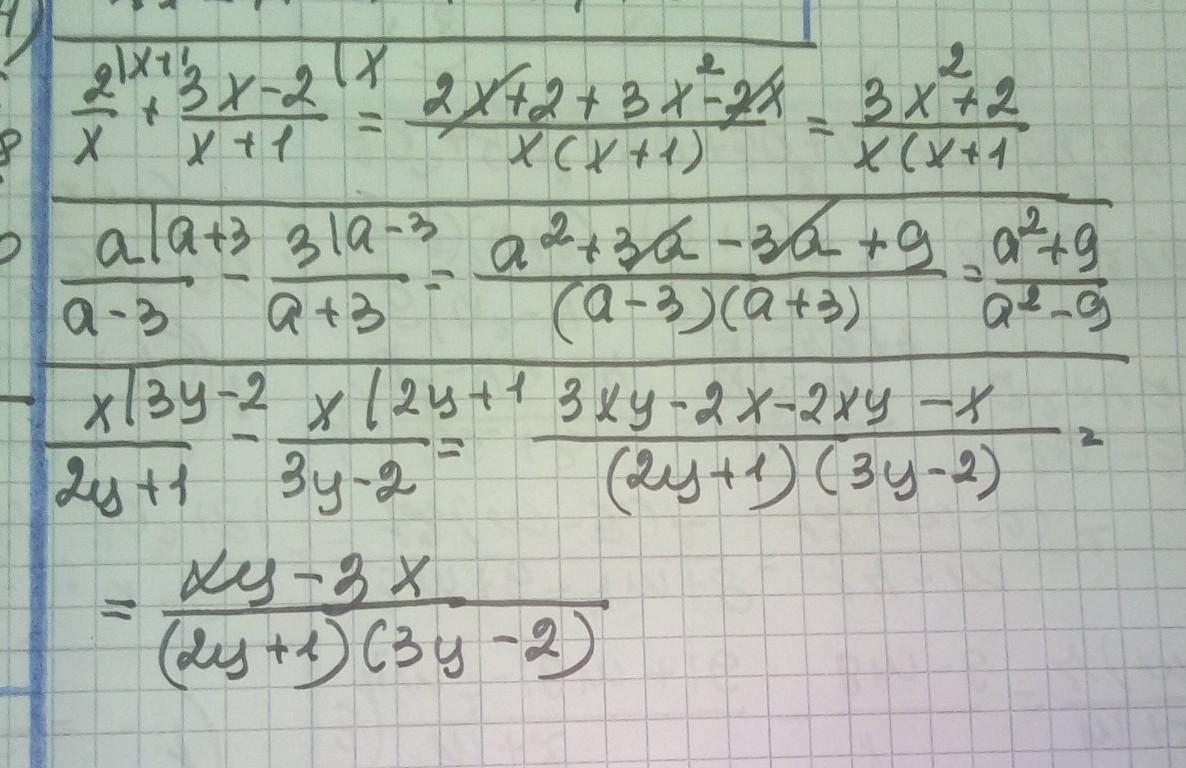 2|x+1/x + 3x-2|x/x+1 = 2x+2+3x²-2x/x(x+1) = 3x²+2/x(x+1
a|a+3/a-3 - 3|a-3/a+3 = a²+3a-3a+9/(a-3)(a+3) = a²+9/a²-9
x|3y-2/2y+1 - x|2y+1/3y-2 = 3xy-2x-2xy-x/(2y+1)(3y-2) =
= xy-3x/(2y+1)(3y-2)